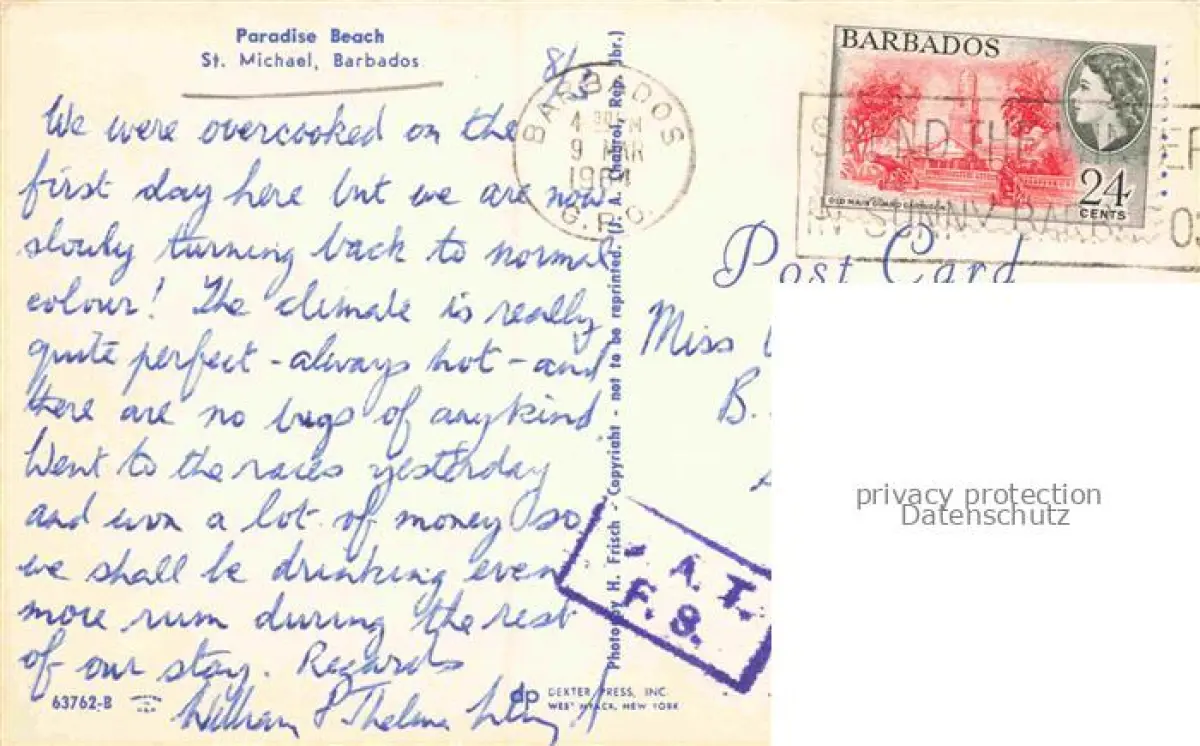 Paradise Beach
St. Michael, Barbados
We were overcooked on the
first day here but we are now
slowly turning back to normal
colour! The climate is really
quite perfect - always hot - and
there are no bugs of any kind.
Went to the races yesterday
and won a lot of money so
we shall be drinking even
more rum during the rest
of our stay. Regards
William & Thelma
63762-B
DEXTER PRESS, INC.
WEST NYACK, NEW YORK
Photo by H. Frisch - Copyright - not to be reprinted. (J. A. Chabrol, Rep. Jbr.)
8/3
BARBADOS
9 MAR
1964
G.P.O.
BARBADOS
24
CENTS
OLD MAIN GUARD GARRISON
SPEND THE WINTER
IN SUNNY BARBADOS
Post Card
Miss
B.
A.T.
F.S.
privacy protection
Datenschutz